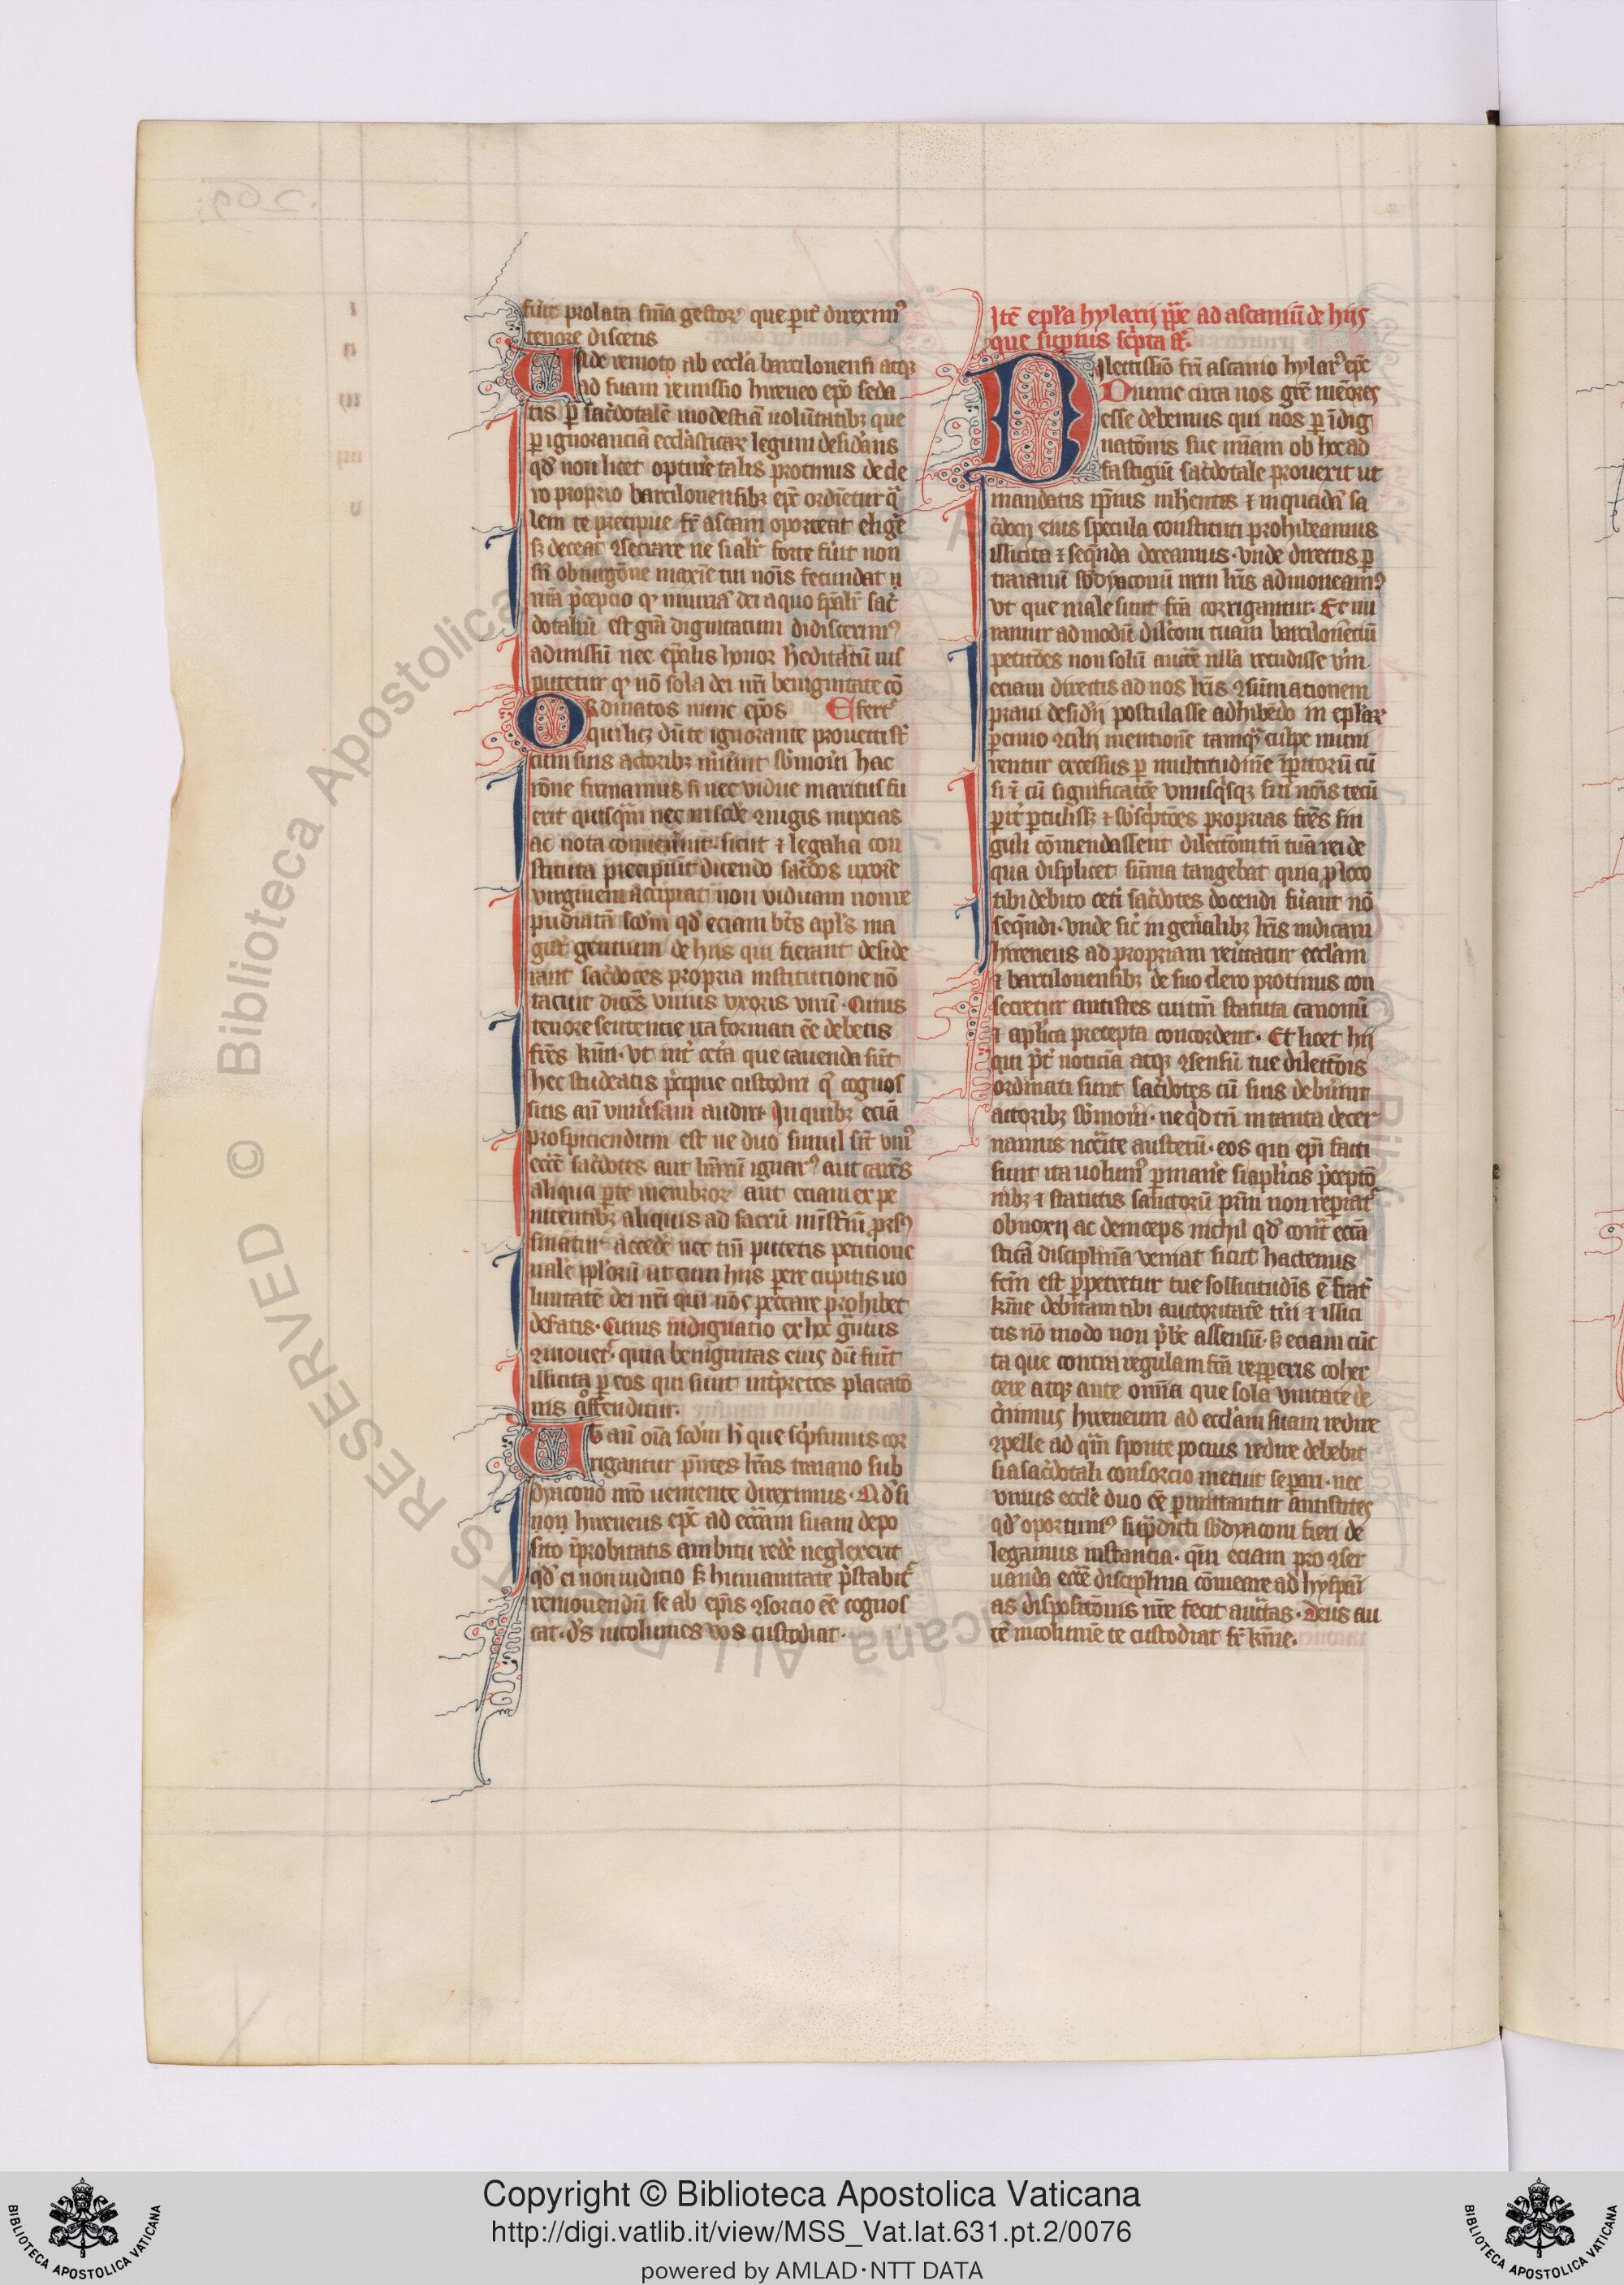 fuit prolata sūma gestoꝝ que parit̄ direximꝰ
tenore discetis
Uide remoto ab eccl̄a barcilonensi atqꝫ
ad suam remissio hireneo ep̄o seda
tis ꝑ sac̄dotalē modestiā volūtatibꝫ que
ꝑ ignoranciā eccl̄asticaꝝ legum desid̄ans
qd̄ non licet optin̄e talis protinus de cle
ro proprio barcilonensibꝫ ep̄c ordīetur q̄
lem te precipue fr̄ ascani oporteat eliḡe
sꝫ deceat ꝯsecrare ne si alit̄ forte fuit non
admissū nec ep̄alis honor h̄editariū ius
putetur qꝫ nō sola dei nr̄i benignitate cō
Ordinatos nunc ep̄os Efert̄
qui licꝫ dūte ignorante prouecti st̄
cum suis actoribꝫ
rōne firmamus si nec vidue maritus fu
erit quisq̄m nec
ac nota sicut ⁊ legalia con
stituta precipiūt dicendo sac̄dos uxorē
virginem accipiat non viduam non re
pudiatā scd̄m qd̄ eciam bt̄s apl̄s ma
gist̄ gentium de hijs qui fierant deside
rant sac̄dotes propria institucione nō
tacuit dicēs vnius vxoris virū. Cuius
tenore sentencie ita formati eē debetis
fr̄es km̄i. vt int̄ cet̄a que cauenda sūt
hec studeatis p̄cipue custodiri q̄ cognos
citis an̄ vniūsam audiri. In quibꝫ eciā
prospiciendum est ne duo simul sīt vniꝰ
ecc̄e sac̄dotes aut lr̄aꝝ ignarꝰ aut carēs
aliqua ꝑte membroꝝ aut eciam ex pe
nitentibꝫ aliquis ad sacrū mīst̄iū
sinatur acced̄e nec tm̄ putetis peticione
uale ppl̄oꝝ ut cum hijs ꝑere cupitis vo
luntatē dei nr̄i qui nos peccare prohibet
des̄atis. Cuius indignatio ex hoc grauius
ꝯmouet̄. quia benignitas eius dū fiūt
illicita ꝑ eos qui sunt int̄pretes placatō
nis offenditur.
Ut an̄ oīa scd̄m h̄ que sc̄psimus cor
rigantur p̄ntes lr̄as traiano sub
dyacono nr̄o veniente direximus. Qd̄ si
non hireneus ep̄c ad eccl̄am suam depo
sito īprobitatis ambitu red̄e neglexerit
qd̄ ei non iuditio sꝫ humanitate p̄stabit̄
remouendū se ab ep̄is ꝯsorcio eē cognos
cat. ds̄ incolumes vos custodiat.
Itē ep̄la hylarij ꝑpe ad ascaniū de hijs
que suꝑius sc̄pta st̄.
Dilectissiō fr̄i ascanio hylarꝰ ep̄c
Diuine circa nos gr̄e mēores
esse debemus qui nos ꝑ īdig
natōnis sue mīam ob hoc ad
fastigiū sac̄dotale prouexit ut
mandatis ip̄ius inherentes ⁊ in quadā sa
c̄docij eius specula constituti prohibeamus
illicita ⁊ seq̄nda doceamus. vnde directis ꝑ
traianū sb̄dyaconū nr̄m lr̄is admoneamꝰ
vt que male sunt fc̄a corrigantur. Et mi
ramur admodū dilc̄om tuam barcilonēciū
petitōes non solū auctē nulla retudisse v̄m
eciam directis ad nos lr̄is ꝯfirmationem
praui desid̄ij postulasse adhibēdo in epl̄aꝝ
ꝑcinio ꝯcilij mentionē tamq̄ culpe muni
rentur excessus ꝑ multitudinē īꝑitoꝝ cū
si ī cū significatōe vniusq̄sqꝫ sui nōis tecū
parit̄ ꝑtulissꝫ ⁊ sb̄sc̄ptōes proprias fr̄es sin
guli cōmendassent dilectōi tn̄ tuā rei de
qua displicet sūma tangebat quia pro loco
tibi debito ceti sac̄dotes docendi fūant nō
seq̄ndi. vnde sic̄ in gen̄alibꝫ lr̄is indicam
hireneus ad propriam reūtatur eccl̄am
⁊ barcilonensibꝫ de suo clero protinus con
secretur antistes cui tm̄ statuta canonū
⁊ apl̄ica precepta concordent. Et licet hij
qui p̄t̄ noticiā atqꝫ ꝯsensū tue dilectōis
ordinati sunt sac̄dotes cū suis debuīnt
actoribꝫ sb̄moūi. ne qd̄ tn̄ in tanta decer
namus ncc̄ite austerū. eos qui ep̄i facti
sunt ita volumꝰ ꝑman̄e si apl̄icis p̄ceptō
nibꝫ ⁊ statutis sanctoꝝ pr̄m non reꝑiāt̄
obnoxij ac deinceps nichil qd̄ cont̄ eccl̄a
sticā disciplinā veniat sicut hactenus
fc̄m est ꝑpetretur tue sollicitudīs ē frat̄
km̄e debitam tibi auctoritatē tūi ⁊ illici
tis nō modo non p̄b̄e assensū. sꝫ eciam cūc
ta que contra regulam fc̄a reꝑeris coher
cere atqꝫ ante omīa que sola vnitate de
c̄nimus hireneum ad eccl̄am suam redire
ꝯpelle ad q̄m sponte pocius redire debebit
si a sac̄dotali consorcio metuit separi. nec
vnius eccl̄e duo eē ꝑmittantur antistites
qd̄ oportuniꝰ supradicti sb̄dyaconi fieri de
legamus instantia. q̄m eciam pro ꝯser
uanda ecc̄e disciplina cōmeare ad hyspani
as dispositōnis nr̄e fecit auctoritas. Deus au
tē incolumē te custodiat fr̄ km̄e.
Copyright © Biblioteca Apostolica Vaticana
http://digi.vatlib.it/view/MSS_Vat.lat.631.pt.2/0076
powered by AMLAD·NTT DATA
BIBLIOTECA APOSTOLICA VATICANA
BIBLIOTECA APOSTOLICA VATICANA